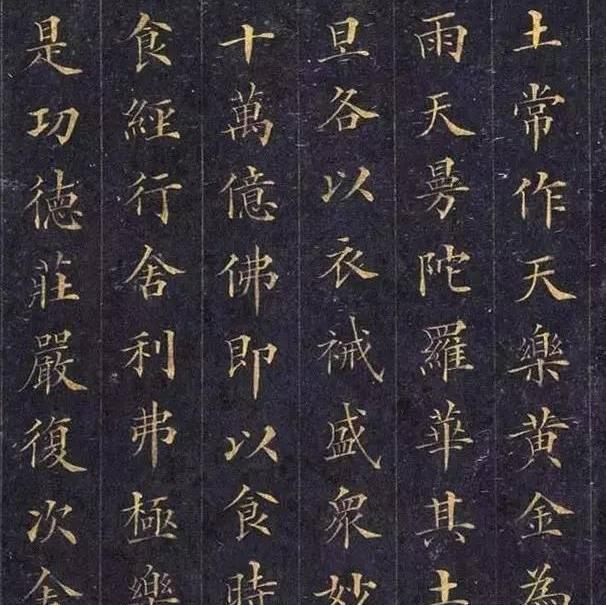 土常作天樂黄金為
雨天曼陀羅華其土
旦各以衣祴盛衆妙
十萬億佛即以食時
食經行舍利弗極樂
是功德莊嚴復次舍